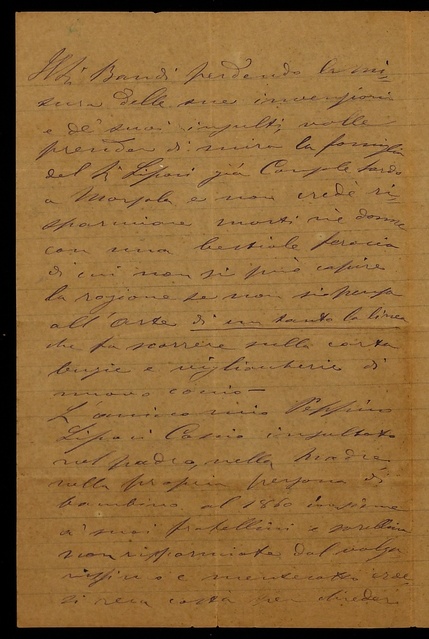 Il Sr Bandi perdendo la mi-
sura delle sue invenzioni
e de' suoi insulti, volle
prender di mira la famiglia
del Sr Lipari già Console Sardo
a Marsala e non credè ri-
sparmiare morti nè donne
con una bestiale ferocia
di cui non si può capire
la ragione se non si pensa
all'arte di un tanto la linea
che fa scorrere sulla carta
bugie e vigliaccherie di
nuovo conio —
L'amico mio Peppino
Lipari Cascio insultato
nel padre, nella madre
nella propria persona di
bambino al 1860 insieme
a' suoi fratellini e sorelline
non risparmiate dal
e
si reca costà per chieder